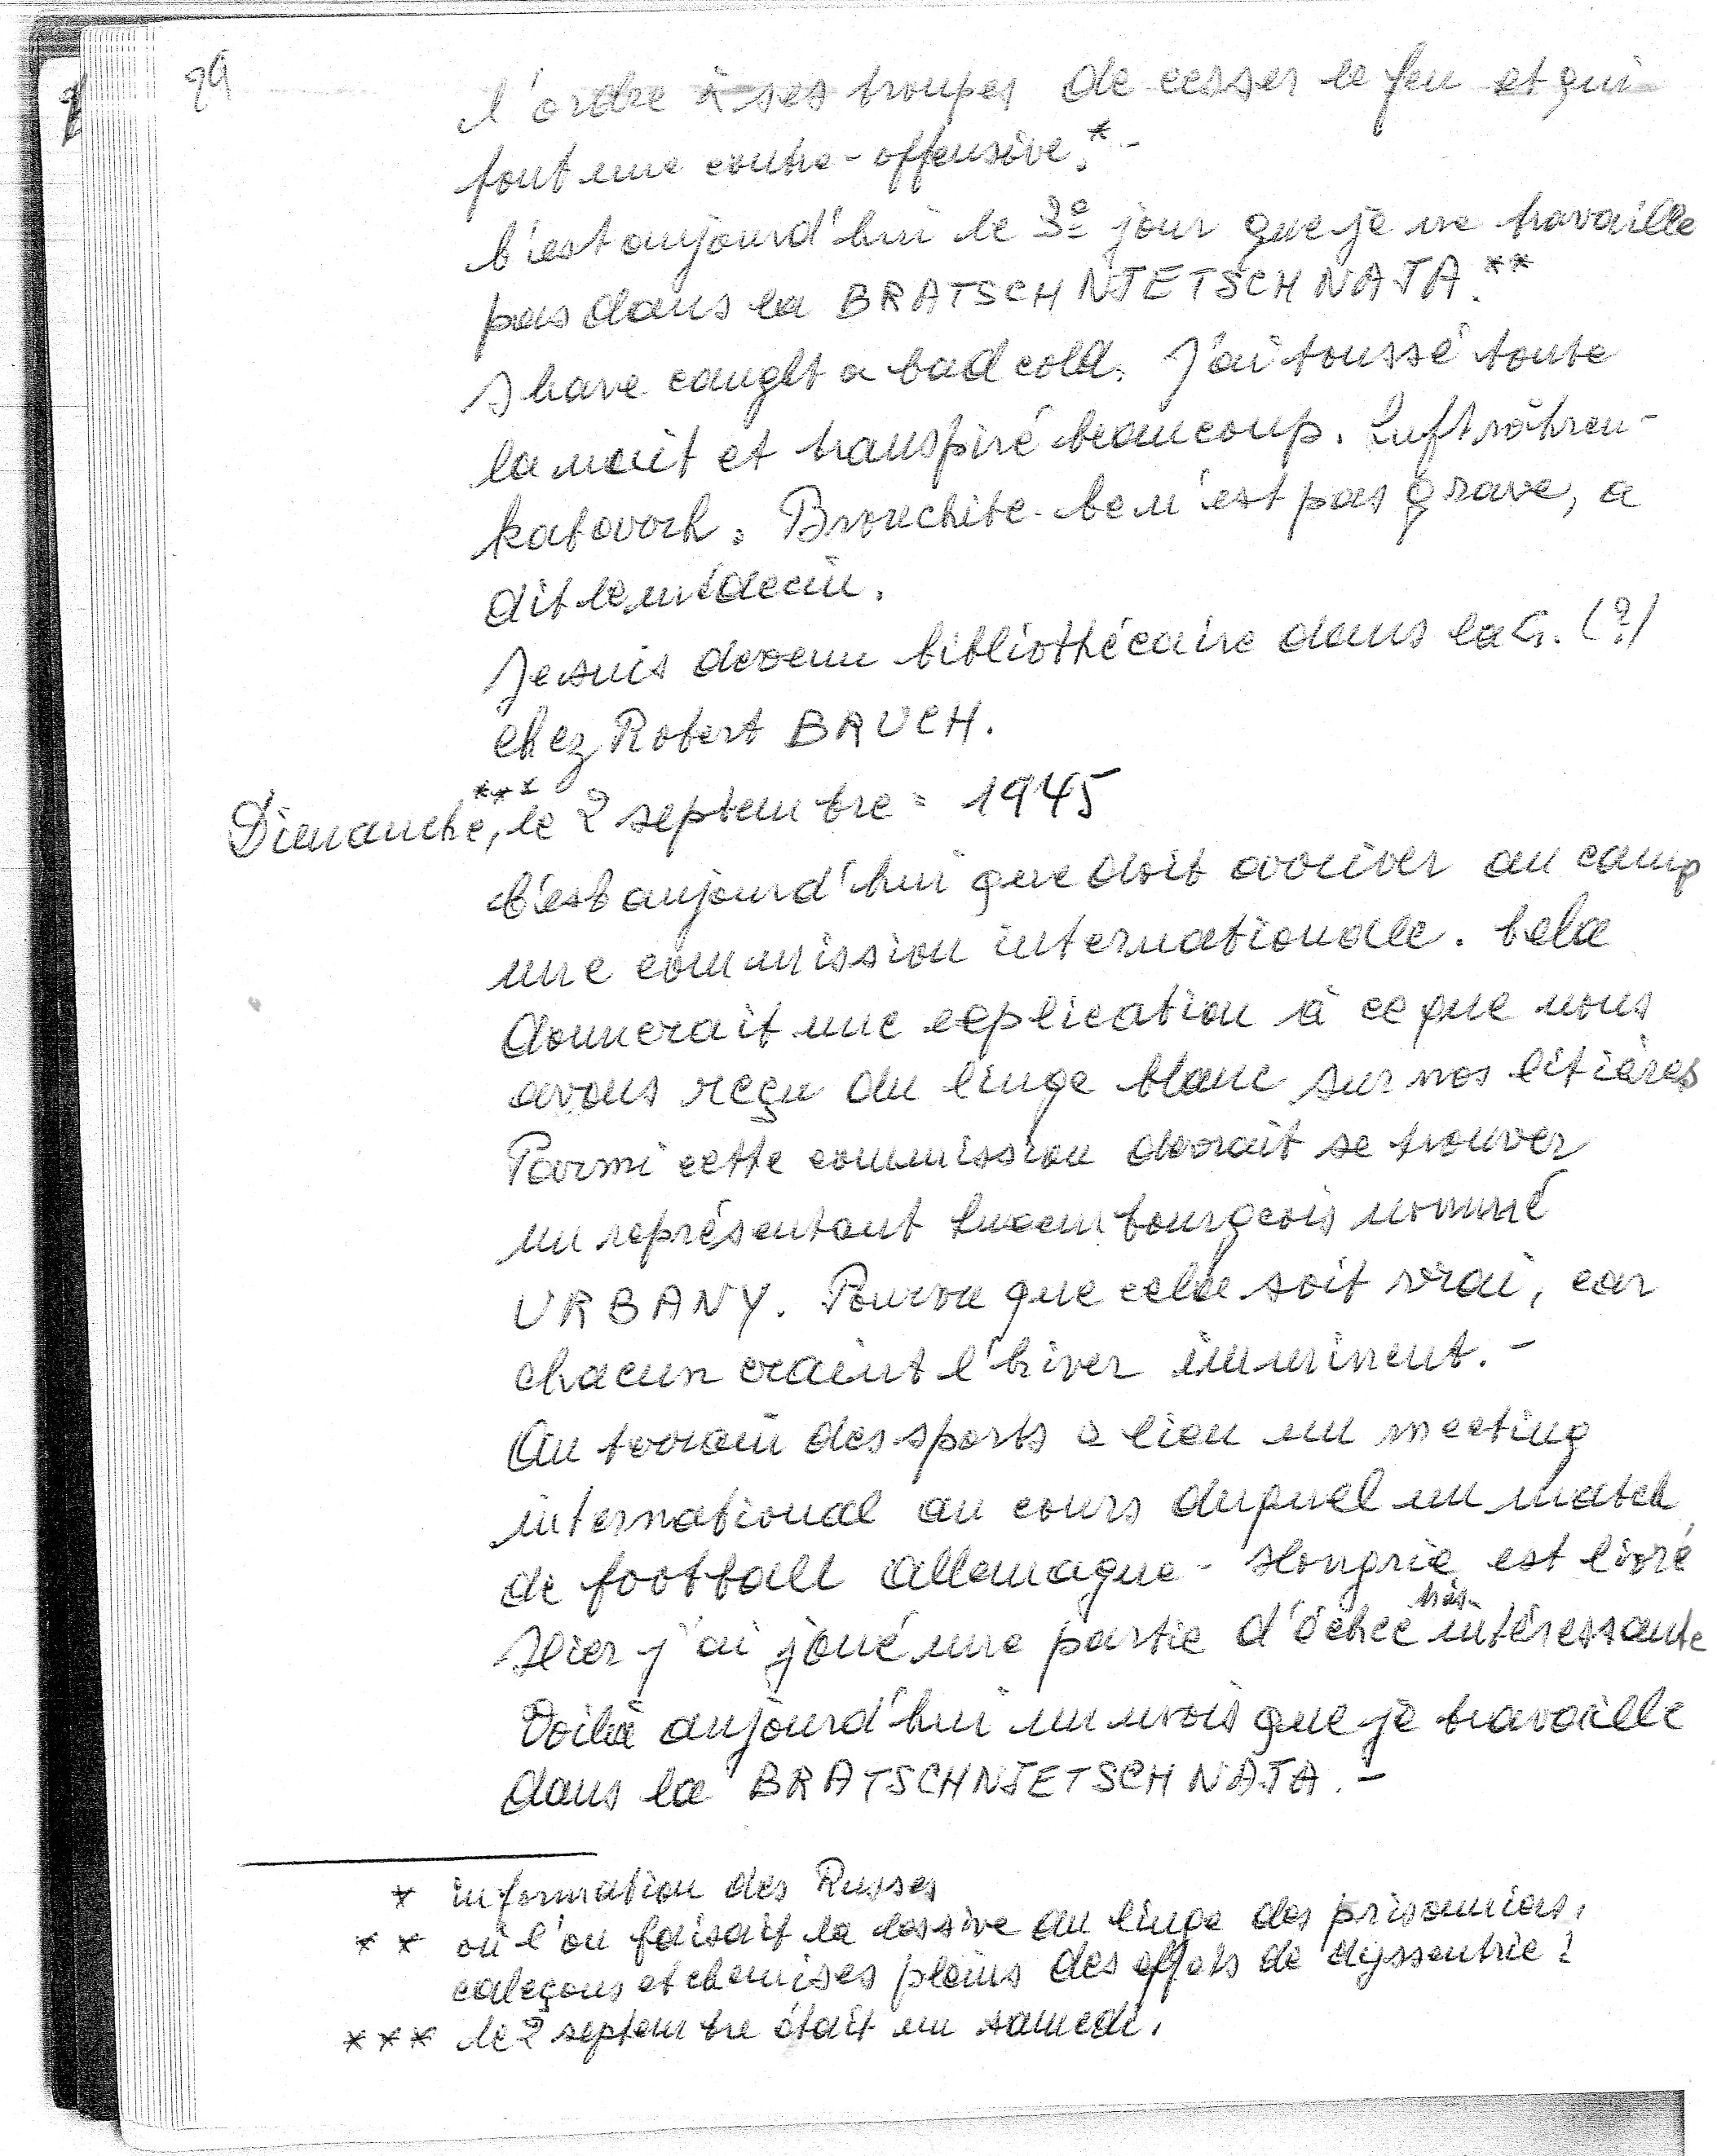 29
l'ordre à ses troupes de cesser le feu et qui
font une contre-offensive.* -
C'est aujourd'hui le 3e jour que je ne travaille
pas dans la BRATSCHNJETSCHNAJA.**
I have caught a bad cold. J'ai toussé toute
la nuit et transpiré beaucoup. Luftröhren-
katarrh. Bronchite. Ce n'est pas grave, a
dit le médecin.
Je suis devenu bibliothécaire dans la G. (?)
chez Robert BAUCH.
Dimanche,*** le 2 septembre = 1945
C'est aujourd'hui que doit arriver au camp
une commission internationale. Cela
donnerait une explication à ce que nous
avons reçu du linge blanc sur nos litières
Parmi cette commission devrait se trouver
un représentant luxembourgeois nommé
URBANY. Pourvu que cela soit vrai, car
chacun craint l'hiver imminent. -
Au terrain des sports a lieu un meeting
international au cours duquel un match
de football Allemagne - Hongrie est livré
Hier j'ai joué une partie d'échec très intéressante
Voilà aujourd'hui un mois que je travaille
dans la BRATSCHNJETSCHNAJA. -
* information des Russes
** où l'on faisait la lessive du linge des prisonniers,
caleçons et chemises pleins des effets de dyssentrie!
*** le 2 septembre était un samedi.